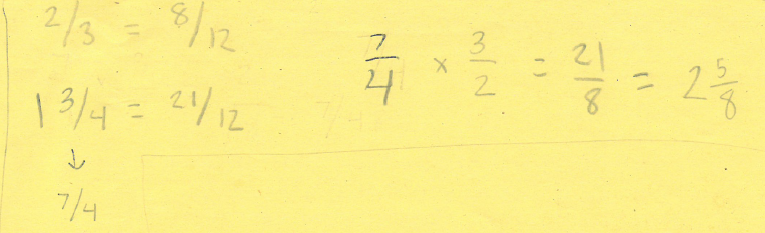 2/3 = 8/12
1 3/4 = 21/12
↓
7/4
7/4 × 3/2 = 21/8 = 2 5/8